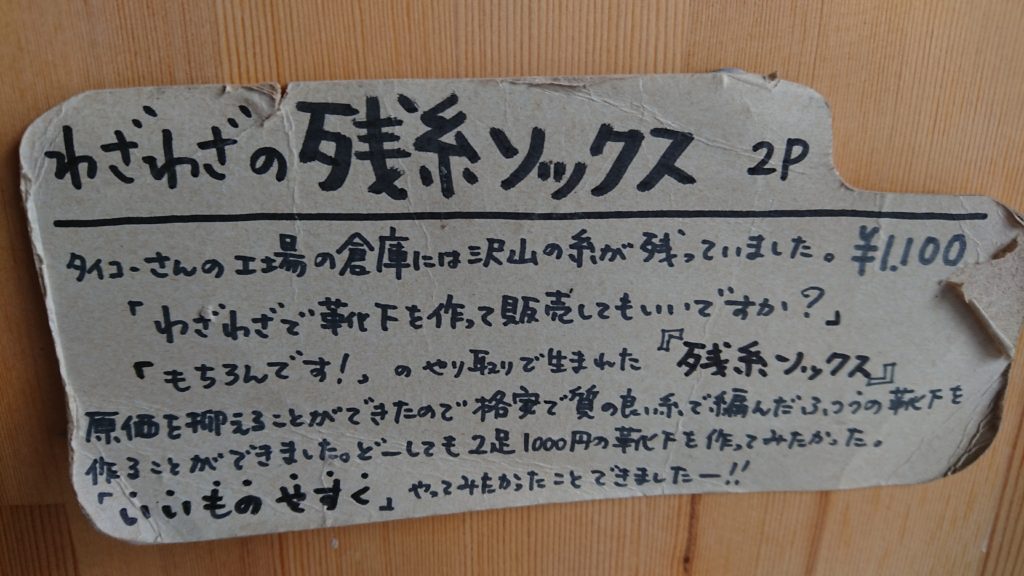 わざわざの残糸ソックス 2P
タイコーさんの工場の倉庫には沢山の糸が残っていました。 ¥1.100
「わざわざで靴下を作って販売してもいいですか？」
「もちろんです!」のやり取りで生まれた『残糸ソックス』
原価を抑えることができたので格安で質の良い糸で編んだふつうの靴下を
作ることができました。どーしても2足1000円の靴下を作ってみたかった。
「いいものやすく」やってみたかったことできましたー!!